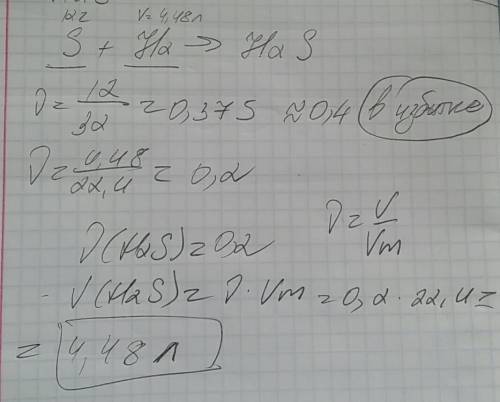 12г V=4,48л
S + H2 → H2S
ν=12/32=0,375 ≈0,4 в избытке
ν=4,48/22,4=0,2
ν(H2S)=0,2 ν=V/Vm
V(H2S)=ν·Vm=0,2·22,4=
=4,48л